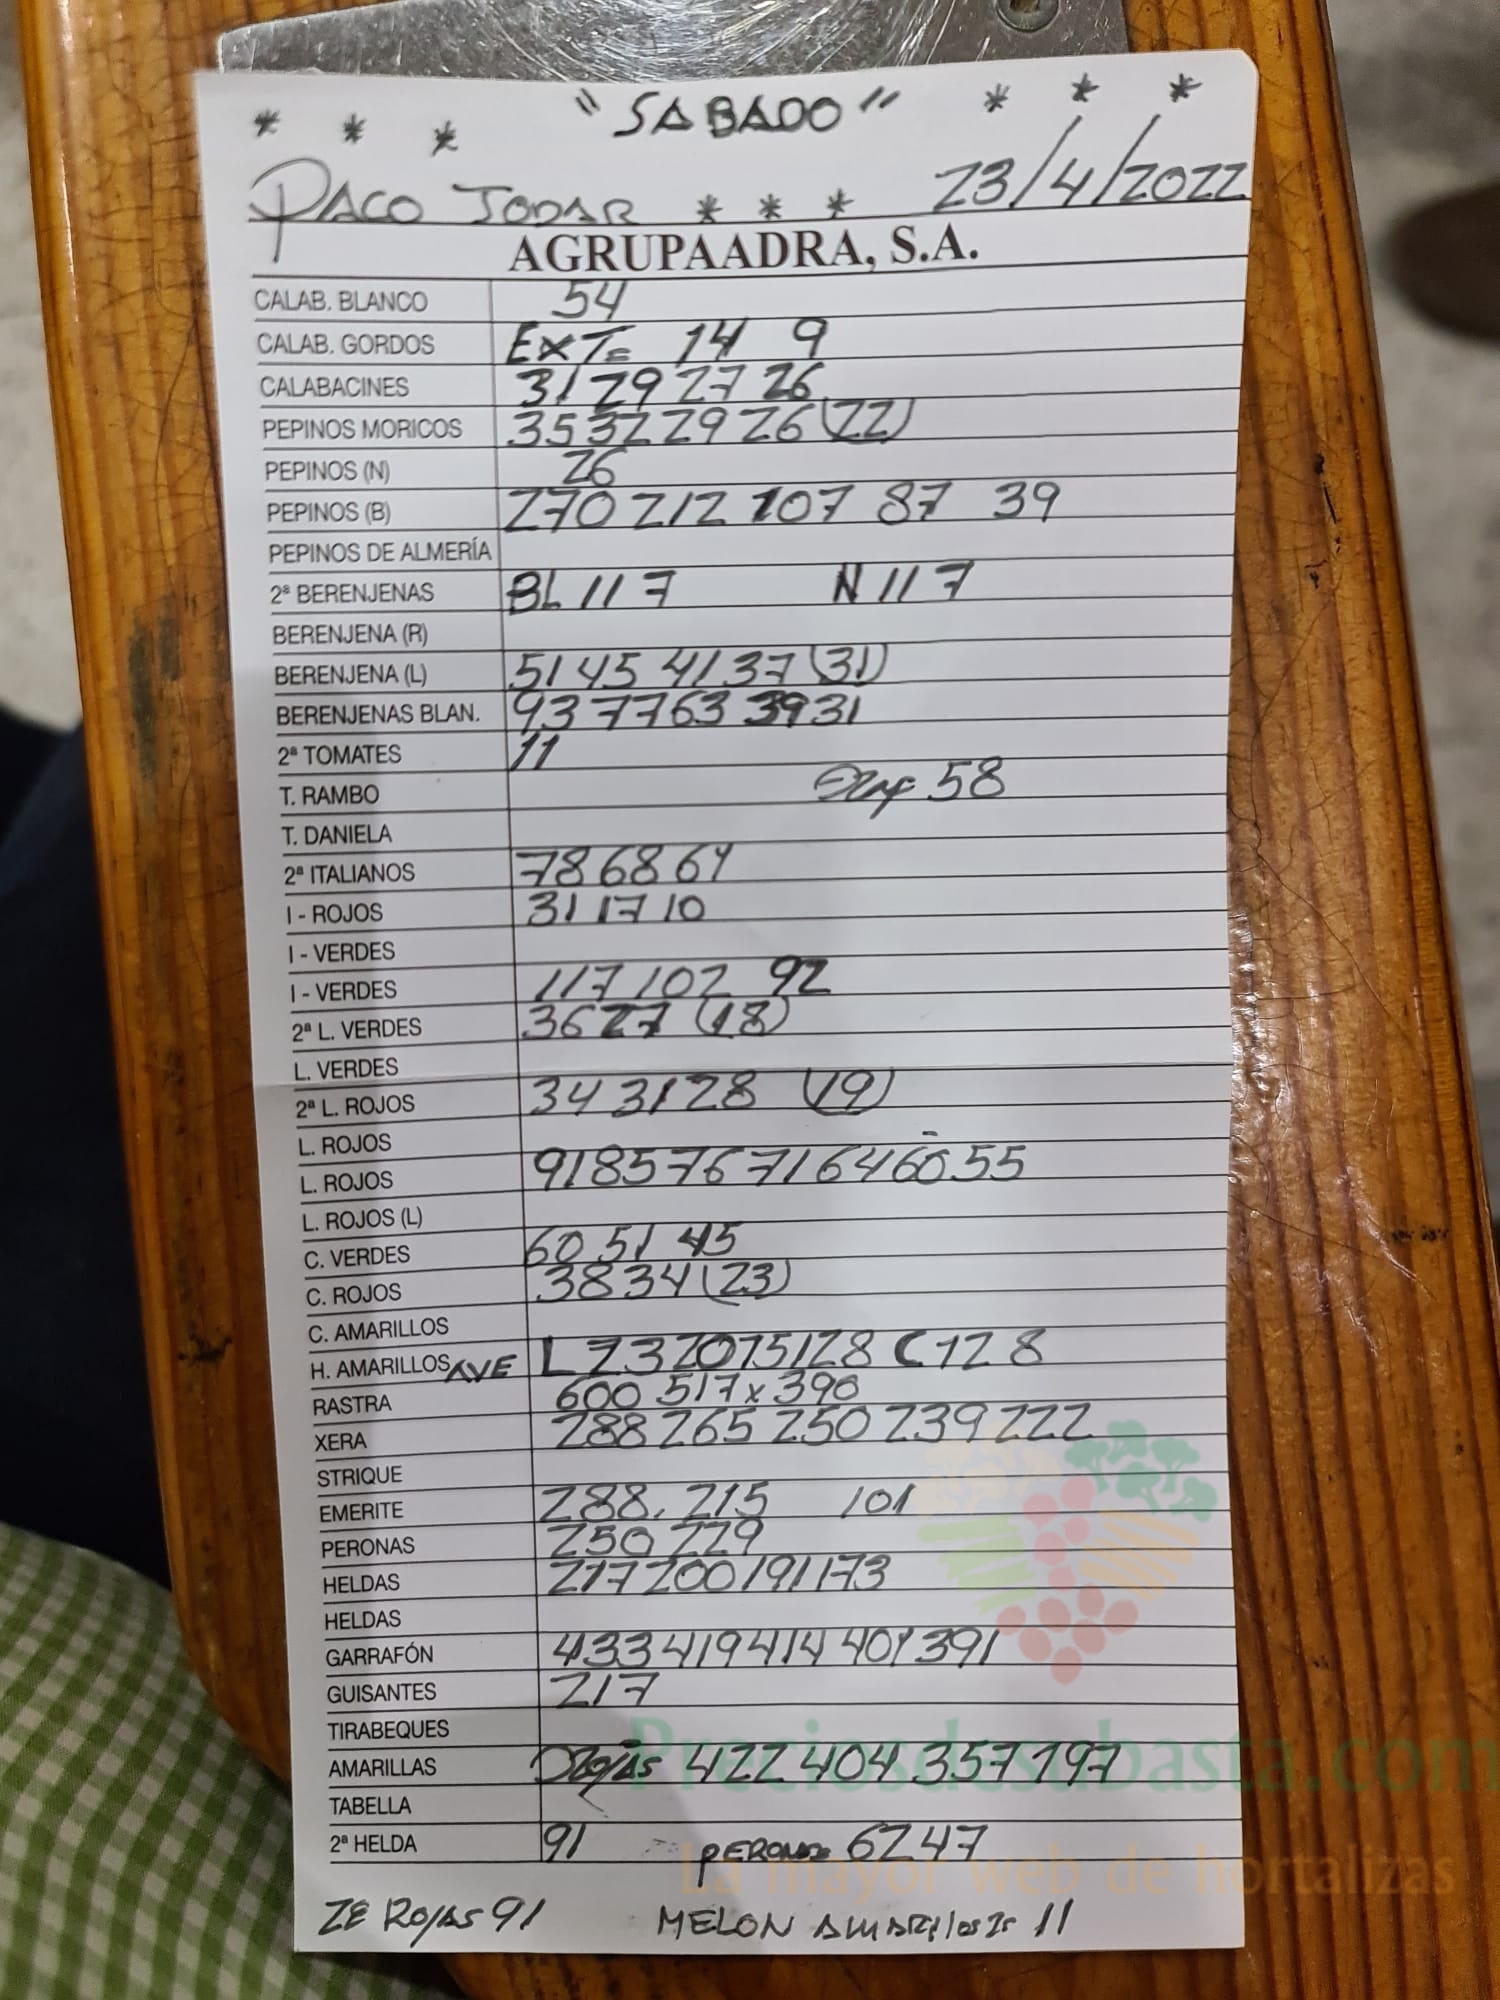 * * * "SABADO" * * *
PACO JODAR * * * 23/4/2022
AGRUPAADRA, S.A.
CALAB. BLANCO 54
CALAB. GORDOS EXT= 14 9
CALABACINES 31 29 27 26
PEPINOS MORICOS 35 32 29 26 (22)
PEPINOS (N) 26
PEPINOS (B) 270 212 107 87 39
PEPINOS DE ALMERÍA
2ª BERENJENAS BL 11 7 N 11 7
BERENJENA (R)
BERENJENA (L) 51 45 41 37 (31)
BERENJENAS BLAN. 93 77 63 39 31
2ª TOMATES 11
T. RAMBO 58
T. DANIELA
2ª ITALIANOS 78 68 64
I - ROJOS 31 17 10
I - VERDES
I - VERDES 117 102 92
2ª L. VERDES 36 27 (18)
L. VERDES
2ª L. ROJOS 34 31 28 (19)
L. ROJOS
L. ROJOS 91 85 76 71 64 60 55
L. ROJOS (L)
C. VERDES 60 51 45
C. ROJOS 38 34 (23)
C. AMARILLOS
H. AMARILLOS AVE L 23 20 15 12 8 C 12 8
RASTRA 600 517 x 390
XERA 288 265 250 239 222
STRIQUE
EMERITE 288. 215 101
PERONAS 250 229
HELDAS 217 200 191 173
HELDAS
GARRAFÓN 433 419 414 401 391
GUISANTES 217
TIRABEQUES
AMARILLAS 422 404 357 197
TABELLA
2ª HELDA 91 PERONAS 62 47
2ª ROJAS 91 MELON AMARILLOS 11
Preciosdesubasta.com
La mayor web de hortalizas